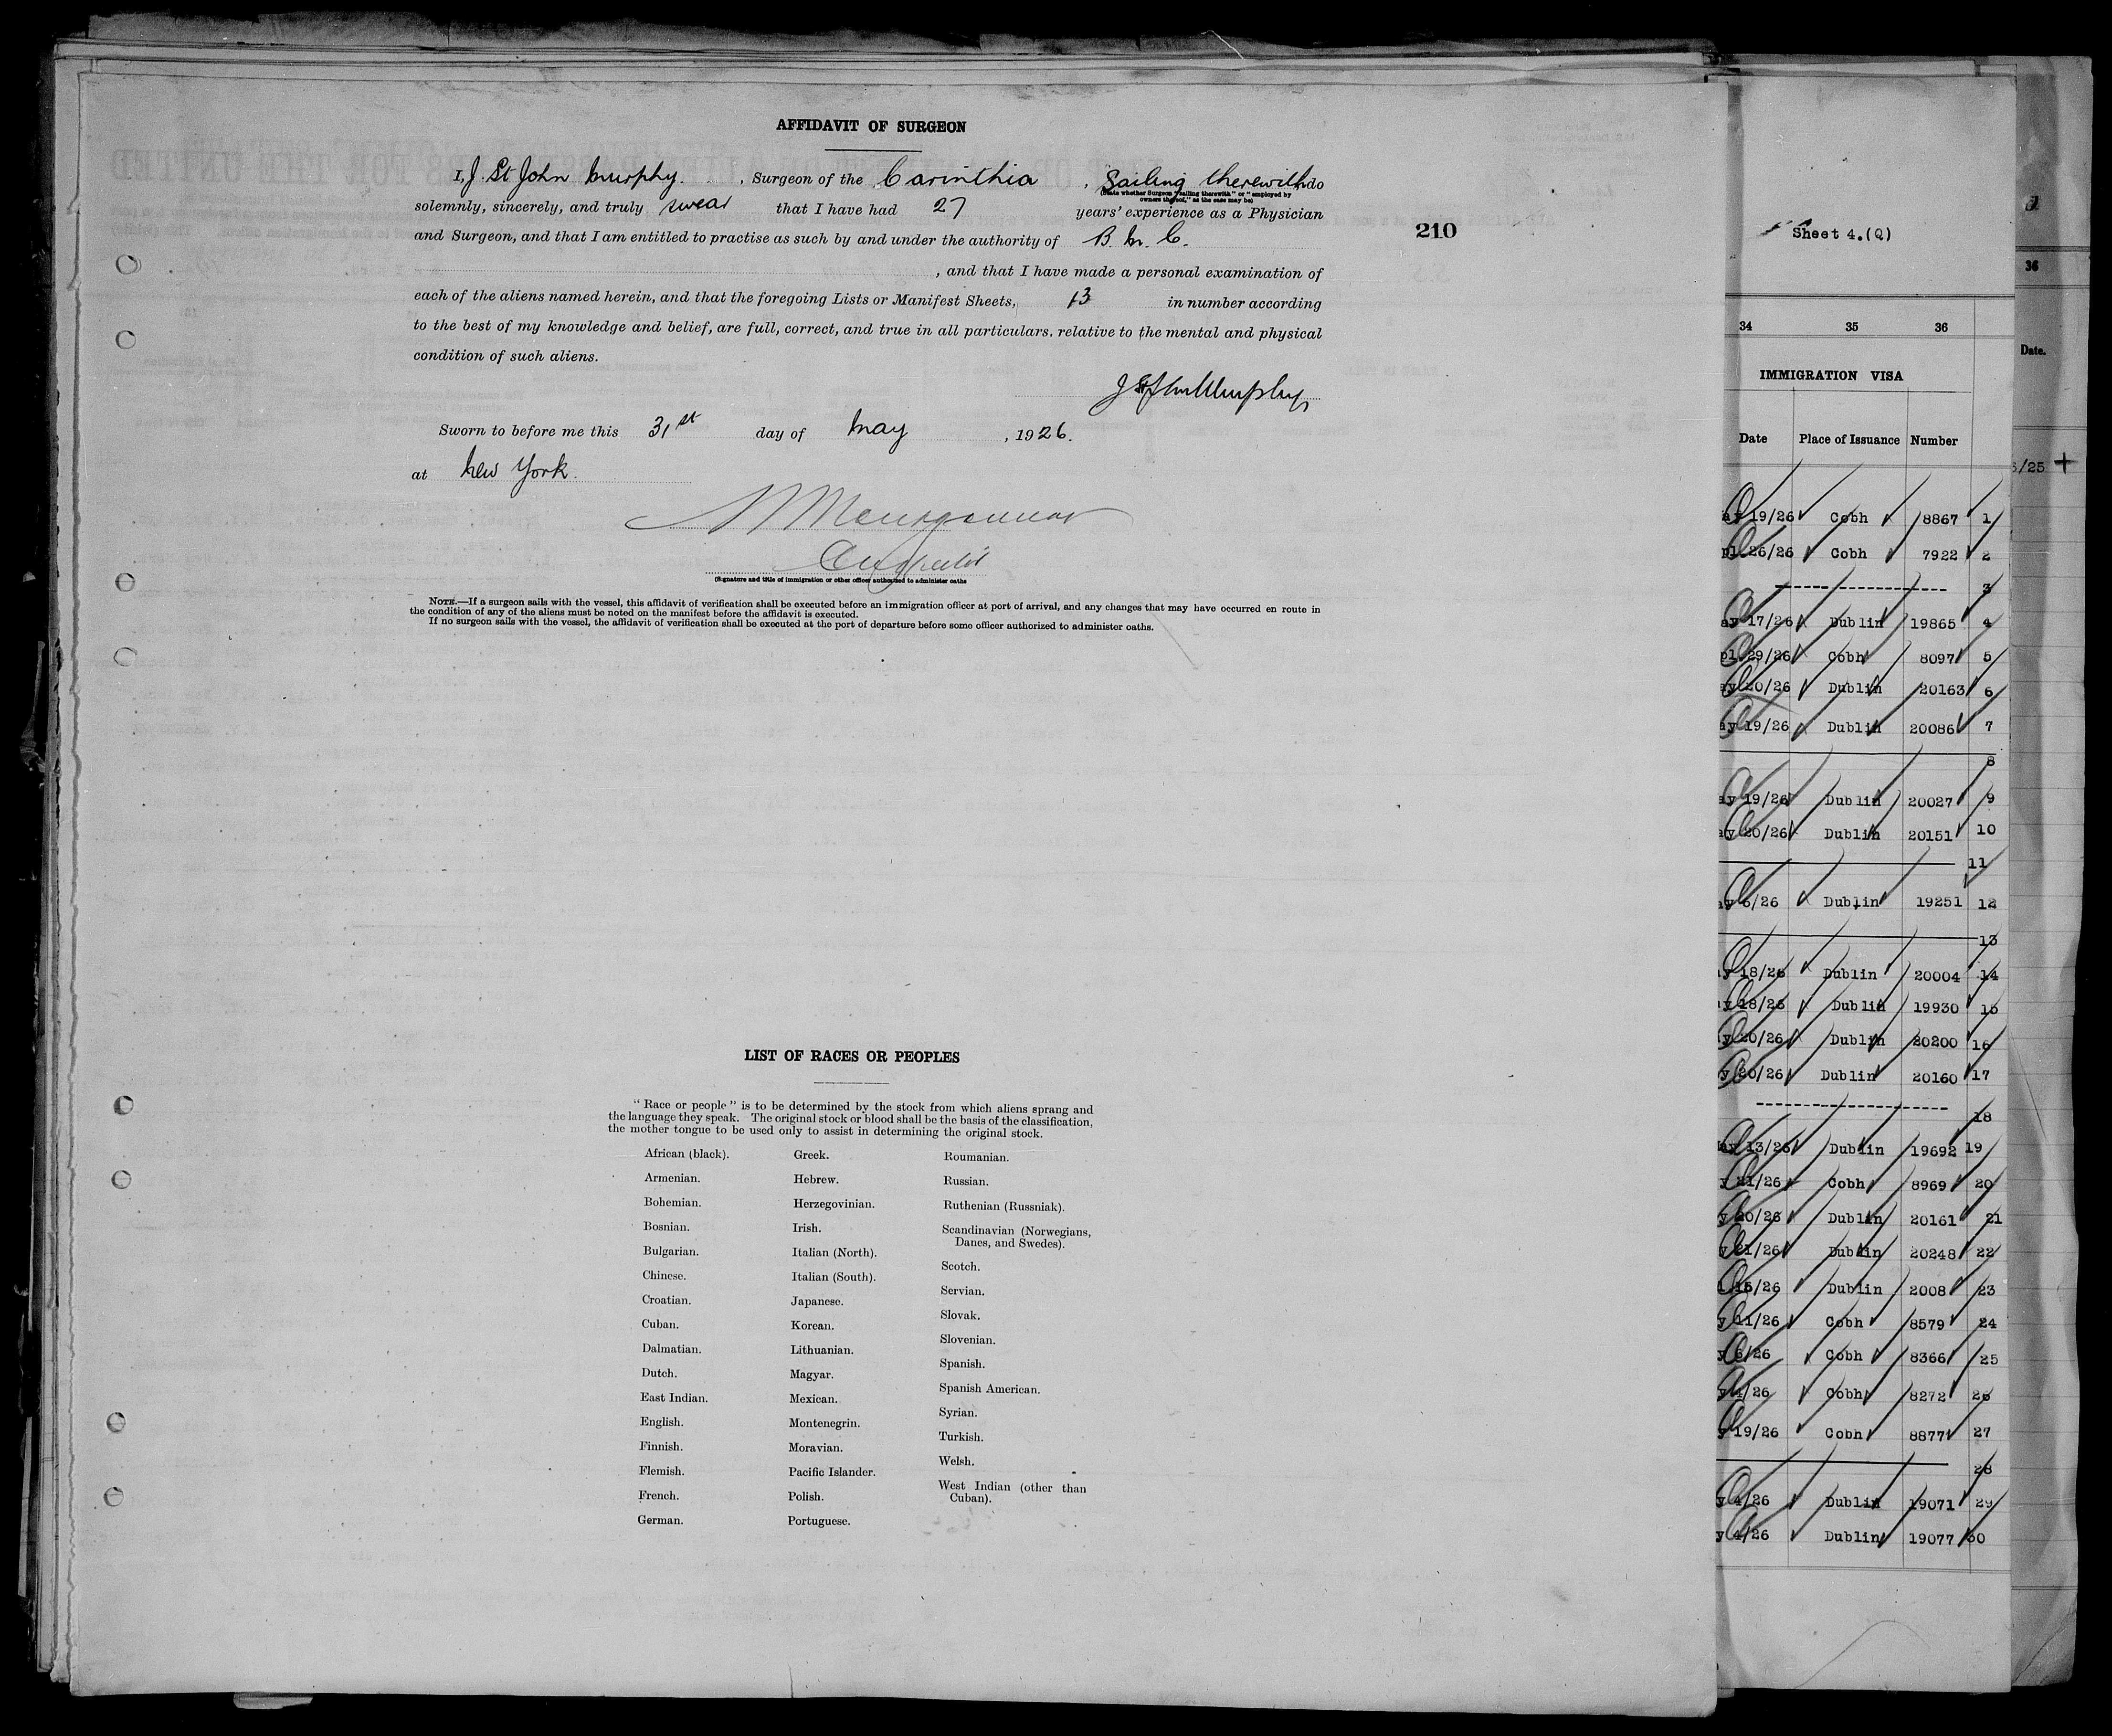 AFFIDAVIT OF SURGEON
I, J. St John Murphy. , Surgeon of the Carinthia , Sailing therewith, do
(State whether Surgeon "sailing therewith" or "employed by
owners thereof," as the case may be)
solemnly, sincerely, and truly swear that I have had 27 years' experience as a Physician
and Surgeon, and that I am entitled to practise as such by and under the authority of B. M. C.
, and that I have made a personal examination of
each of the aliens named herein, and that the foregoing Lists or Manifest Sheets, 13 in number according
to the best of my knowledge and belief, are full, correct, and true in all particulars, relative to the mental and physical
condition of such aliens.
J St John Murphy
Sworn to before me this 31st day of May , 1926.
at New York.
(Signature and title of immigration or other officer authorised to administer oaths
NOTE.—If a surgeon sails with the vessel, this affidavit of verification shall be executed before an immigration officer at port of arrival, and any changes that may have occurred en route in
the condition of any of the aliens must be noted on the manifest before the affidavit is executed.
If no surgeon sails with the vessel, the affidavit of verification shall be executed at the port of departure before some officer authorized to administer oaths.
210
LIST OF RACES OR PEOPLES
"Race or people" is to be determined by the stock from which aliens sprang and
the language they speak. The original stock or blood shall be the basis of the classification,
the mother tongue to be used only to assist in determining the original stock.
African (black).
Armenian.
Bohemian.
Bosnian.
Bulgarian.
Chinese.
Croatian.
Cuban.
Dalmatian.
Dutch.
East Indian.
English.
Finnish.
Flemish.
French.
German.
Greek.
Hebrew.
Herzegovinian.
Irish.
Italian (North).
Italian (South).
Japanese.
Korean.
Lithuanian.
Magyar.
Mexican.
Montenegrin.
Moravian.
Pacific Islander.
Polish.
Portuguese.
Roumanian.
Russian.
Ruthenian (Russniak).
Scandinavian (Norwegians,
Danes, and Swedes).
Scotch.
Servian.
Slovak.
Slovenian.
Spanish.
Spanish American.
Syrian.
Turkish.
Welsh.
West Indian (other than
Cuban).
Sheet 4.(Q)
34 35 36
IMMIGRATION VISA
Date Place of Issuance Number
ay 19/26 Cobh 8867 1
pl 26/26 Cobh 7922 2
3
ay 17/26 Dublin 19865 4
pl 29/26 Cobh 8097 5
ay 20/26 Dublin 20163 6
ay 19/26 Dublin 20086 7
8
ay 19/26 Dublin 20027 9
ay 20/26 Dublin 20151 10
11
ay 6/26 Dublin 19251 12
13
y 18/26 Dublin 20004 14
y 18/26 Dublin 19930 15
y 20/26 Dublin 20200 16
y 20/26 Dublin 20160 17
18
ay 13/26 Dublin 19692 19
y 21/26 Cobh 8969 20
y 20/26 Dublin 20161 21
y 21/26 Dublin 20248 22
l 15/26 Dublin 2008 23
y 11/26 Cobh 8579 24
y 6/26 Cobh 8366 25
y 4/26 Cobh 8272 26
y 19/26 Cobh 8877 27
28
y 4/26 Dublin 19071 29
y 4/26 Dublin 19077 30
36
Date.
/25 +